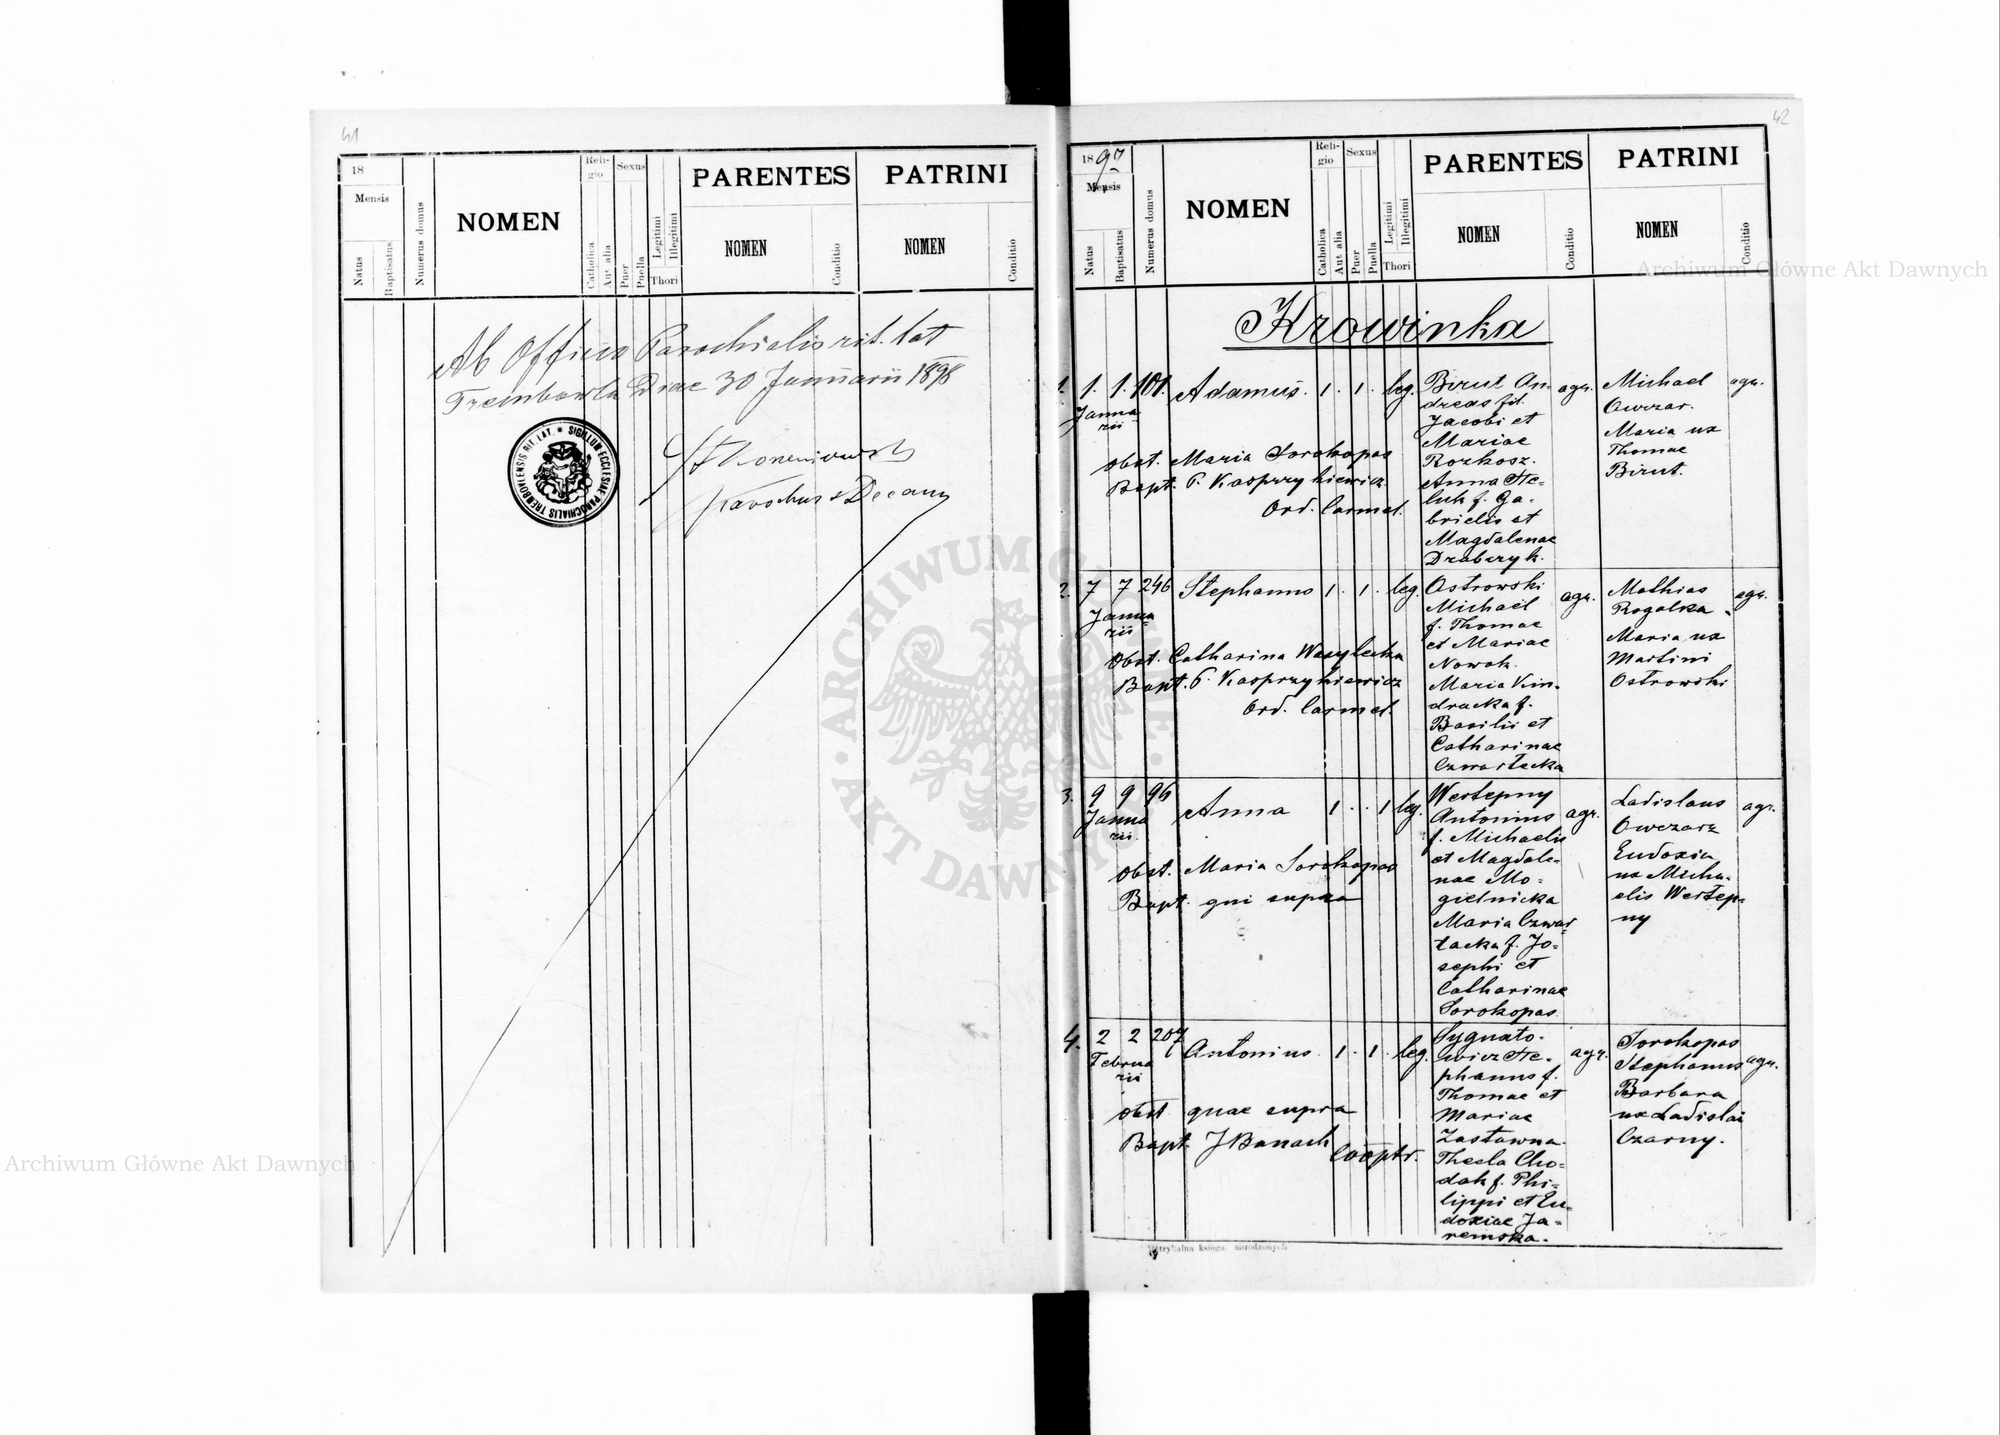 41
18
Mensis
Natus
Baptisatus
Numerus domus
NOMEN
Reli-
gio
Catholica
Aut alia
Sexus
Puer
Puella
Legitimi
Illegitimi
Thori
PARENTES
NOMEN
Conditio
PATRINI
NOMEN
Conditio
Ab Officio Parochialis rit. lat
Trembowla Diae 30 Januarii 1898
SIGILLUM ECCLESIAE PAROCHIALIS TREMBOVLENSIS RIT. LAT.
Parochus & Decanus
42
1897
Mensis
Natus
Baptisatus
Numerus domus
NOMEN
Reli-
gio
Catholica
Aut alia
Sexus
Puer
Puella
Legitimi
Illegitimi
Thori
PARENTES
NOMEN
Conditio
PATRINI
NOMEN
Conditio
Krowinka
1. 1. 1. 101. Adamus. 1. 1. leg.
Janua
rii
obst. Maria Sorokopas
Bapt. P. Kasprzykiewicz
Ord. Carmel.
Birut An-
dreas fil.
Jacobi et
Mariae
Rozkosz.
Anna Ste-
luk f. Ga-
brielis et
Magdalenae
Drabczyk.
agr.
Michael
Owczar.
Maria ux
Thomae
Birut.
agr.
2. 7 7 246 Stephanus 1. 1. leg.
Janua
rii
obst. Catharina Wasylecka
Bapt. P. Kasprzykiewicz
Ord. Carmel.
Ostrowski
Michael
f. Thomae
et Mariae
Nowak.
Maria Kin-
dracka f.
Basilii et
Catharinae
Czwartacka
agr.
Mathias
Rogalska
Maria ux
Martini
Ostrowski
agr.
3. 9 9 96 Anna 1 . . 1 leg.
Janua
rii.
obst. Maria Sorokopas
Bapt. qui supra
Wertepny
Antonius
f. Michaelis
et Magdale-
nae Mo-
gielnicka
Maria Czwar-
tacka f. Jo-
sephi et
Catharinae
Sorokopas
agr.
Ladislaus
Owczarz
Eudoxia
ux Micha-
elis Wertep-
ny
agr.
4. 2 2 207 Antonius. 1. 1. leg.
Februa
rii
obst quae supra
Bapt. J Banach Cooptr.
Sygnato-
wicz Ste-
phanus f.
Thomae et
Mariae
Zastawna.
Thecla Cho-
dak f. Phi-
lippi et Eu-
doxiae Ja-
remska.
agr.
Sorokopas
Stephanus
Barbara
ux Ladislai
Czarny.
agr.
Metrykalna księga narodzonych
ARCHIWUM GŁÓWNE AKT DAWNYCH
Archiwum Główne Akt Dawnych
Archiwum Główne Akt Dawnych